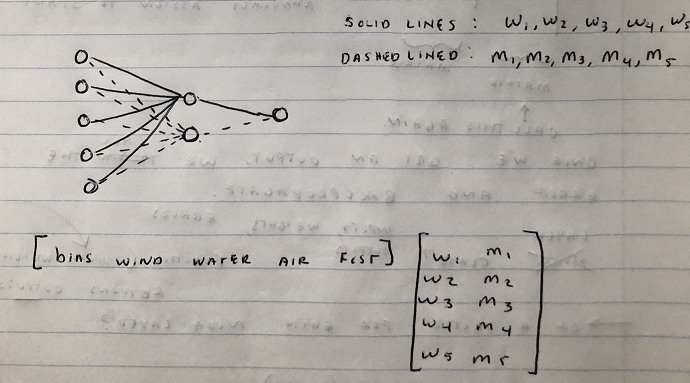 SOLID LINES : W1, W2, W3, W4, W5
DASHED LINED : M1, M2, M3, M4, M5
[ bias WIND WATER AIR ] [ W1 M1
W2 M2
W3 M3
W4 M4
W5 M5 ]